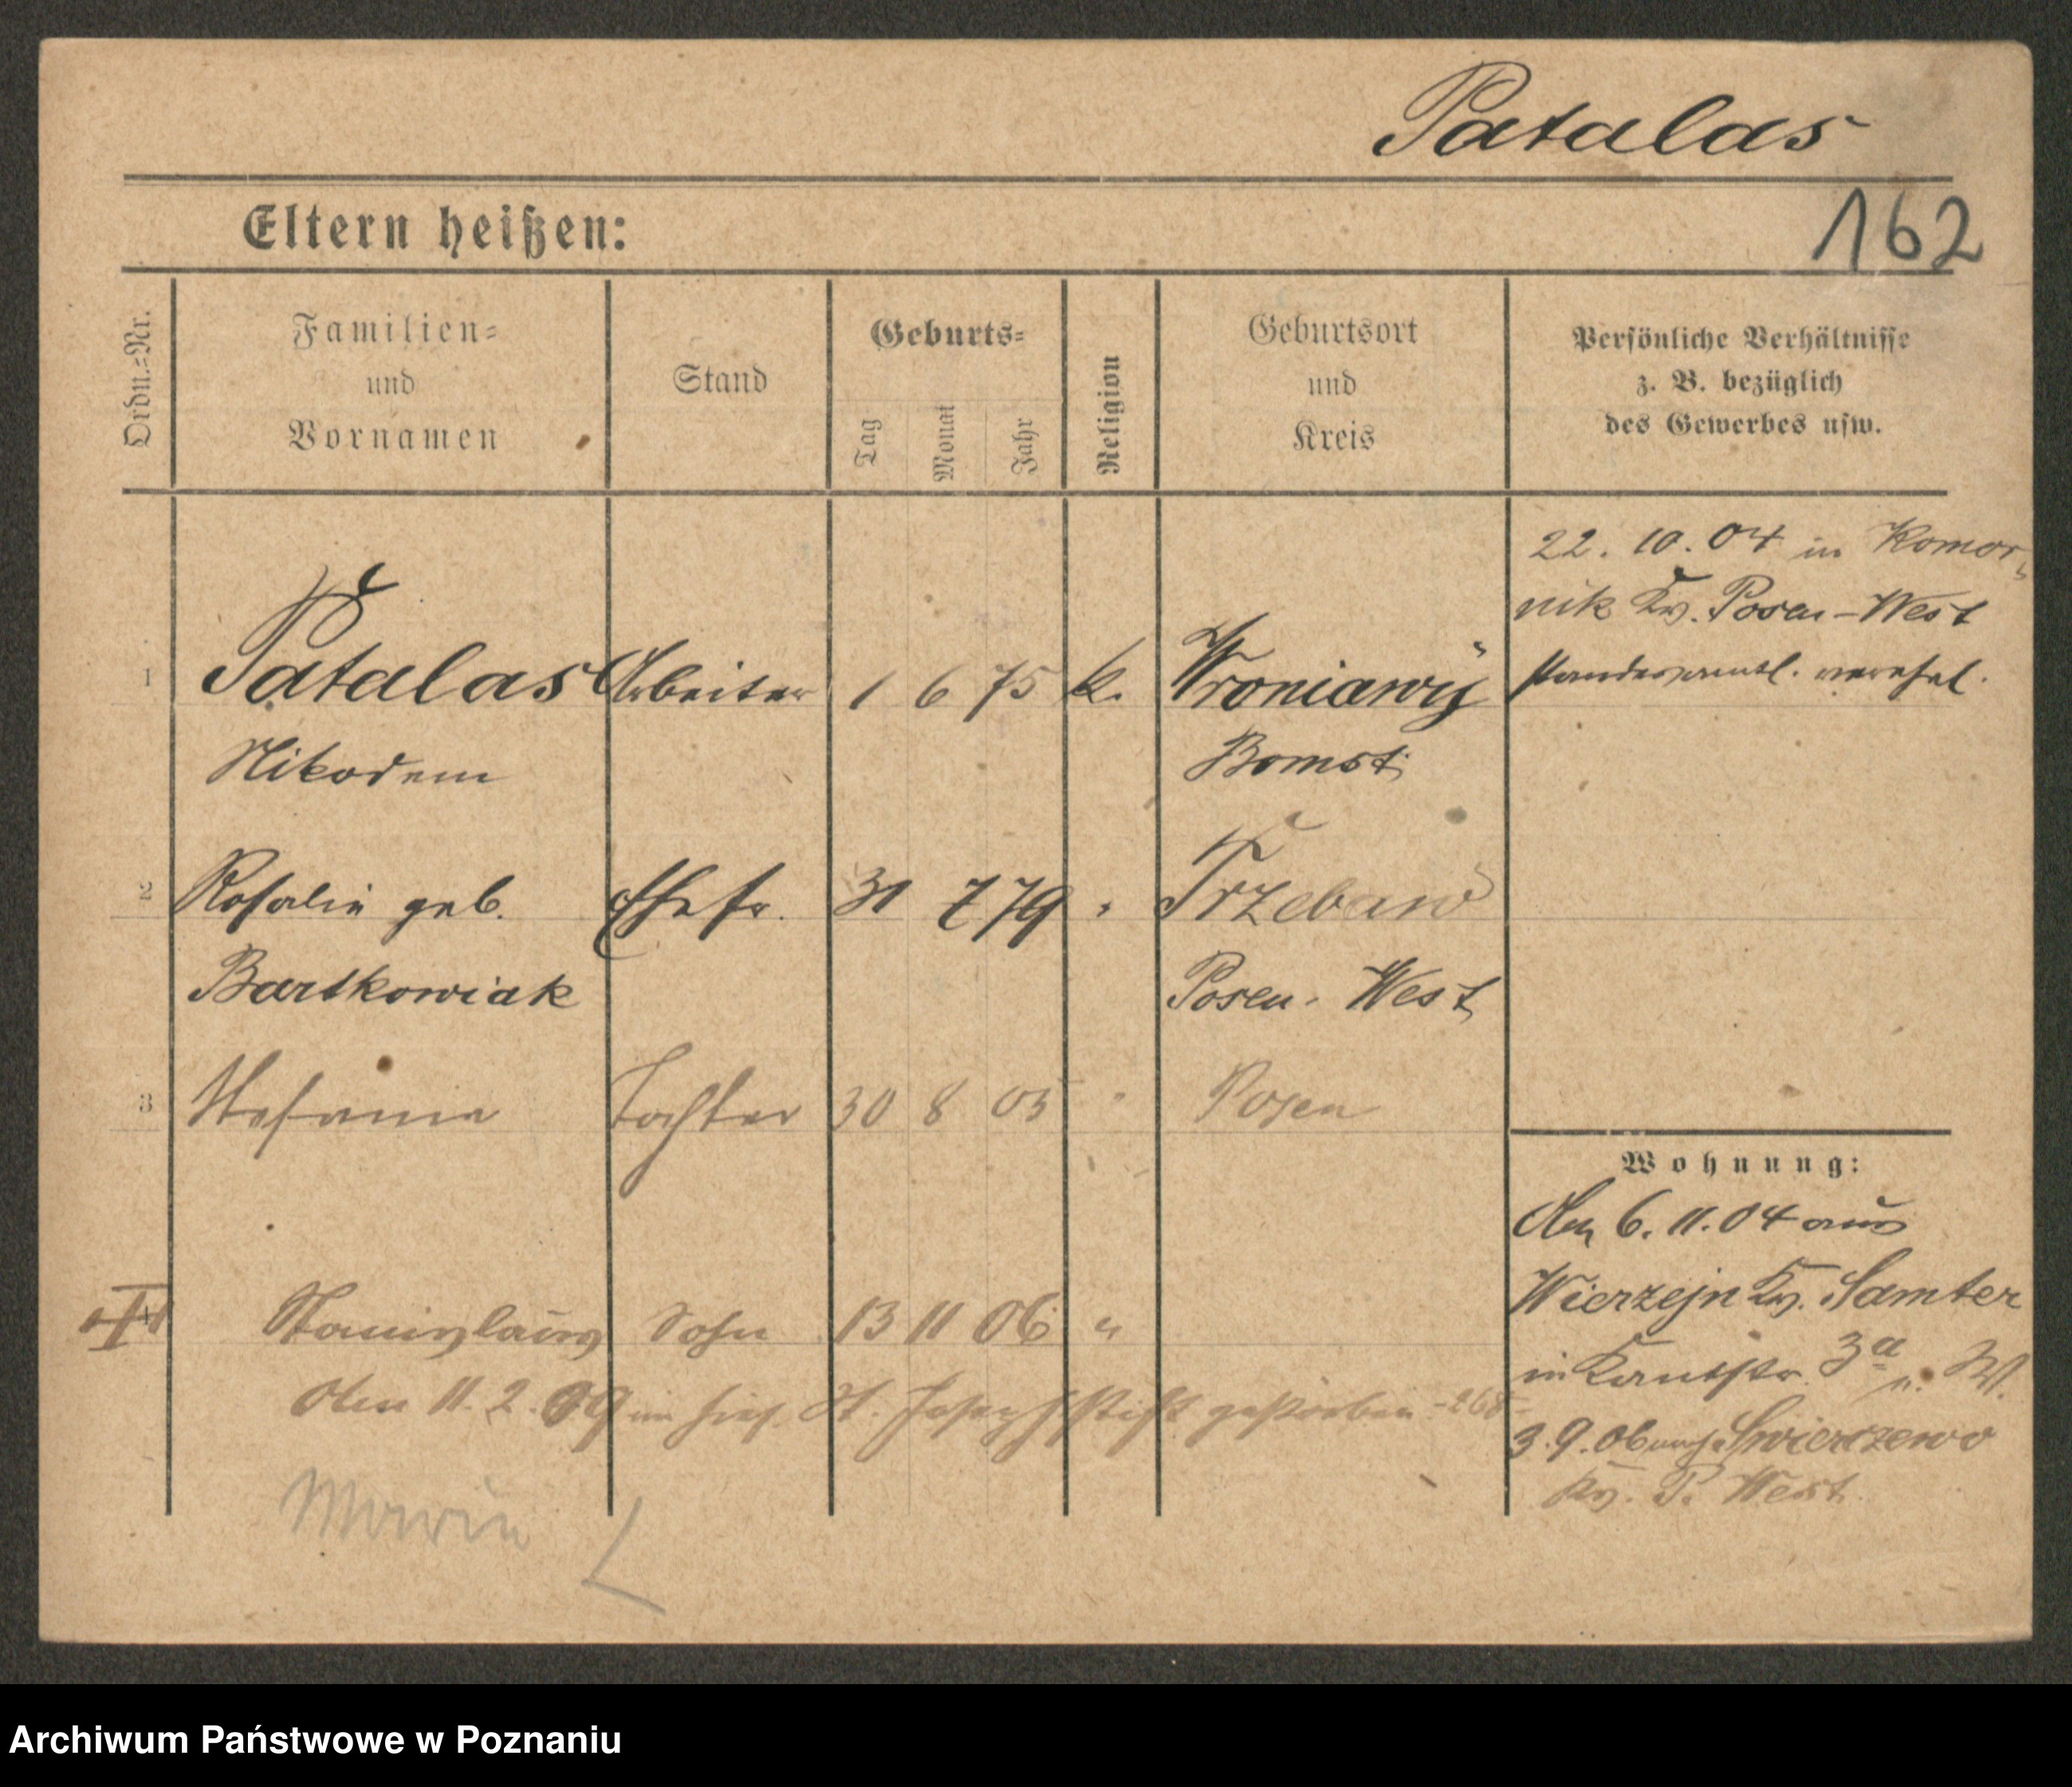 Patalas
162
Eltern heißen:
Ordn.=Nr.
Familien=
und
Vornamen
Stand
Geburts=
Tag
Monat
Jahr
Religion
Geburtsort
und
Kreis
Persönliche Verhältnisse
z. B. bezüglich
des Gewerbes usw.
22. 10. 04 in Komor-
nik Kr. Posen-West
standesamtl. verehel.
1 Patalas Arbeiter 1 6 75 k. Wroniawy
Nikodem Bomst
2 Rosalie geb. Ehefr. 31 7 79 " Trzebaw
Bartkowiak Posen-West
3 Stefania Tochter 30 8 05 " Posen
Wohnung:
Am 6. 11. 04 aus
Wierzeja Kr. Samter
in Kantstr. 3a n. W.
3. 9. 06 nach Swierczewo
Kr. P. West
4 Stanislaus Sohn 13 11 06 "
Am 11. 2. 09 im hies. St. Josephstift gestorben -268-
Marie
Archiwum Państwowe w Poznaniu